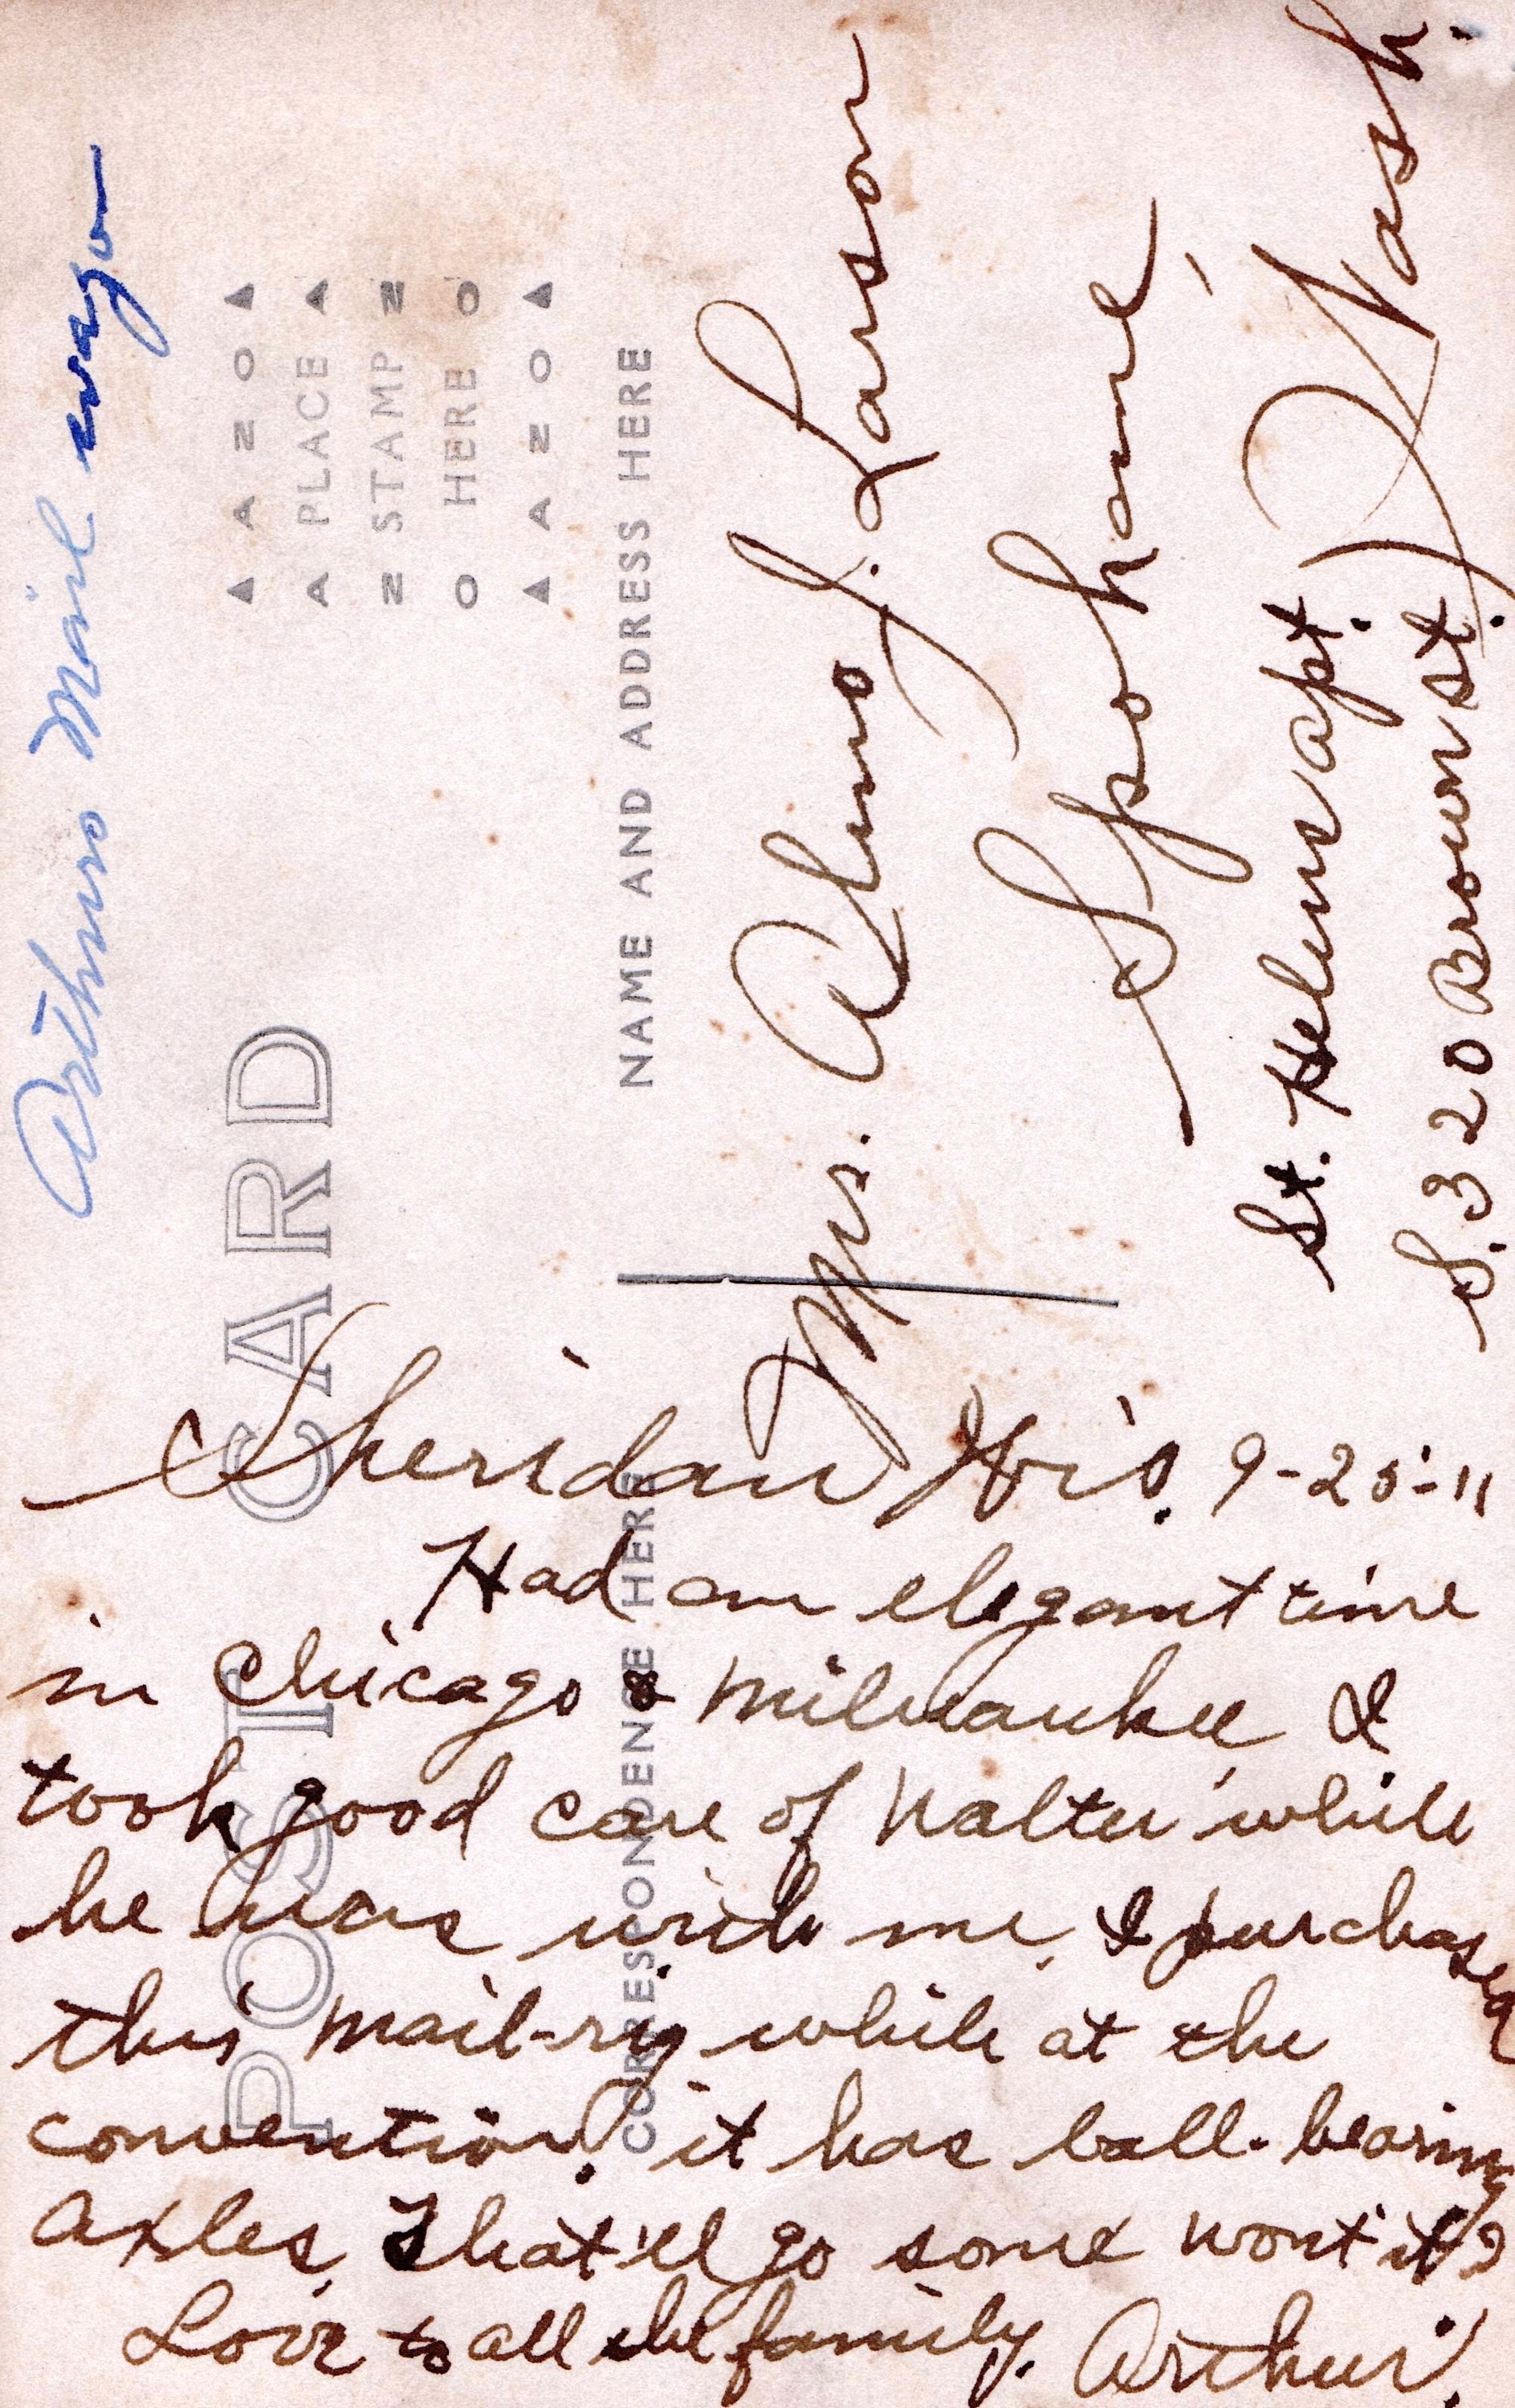 Arthurs Mail wagon
POST CARD
AZO
A PLACE A
Z STAMP Z
O HERE O
AZO
CORRESPONDENCE HERE
NAME AND ADDRESS HERE
Sheridan Wis. 9-25-11
Had an elegant time
in Chicago & Milwaukee I
took good care of Walter while
he was with me, I purchased
this mail-rig while at the
convention. it has ball-bearing
axles, That'll go some wont it?
Love to all the family. Arthur.
Mr. Alno J. Larson
Spokane,
Wash.
St. Helens apt.
S. 320 Brown st.